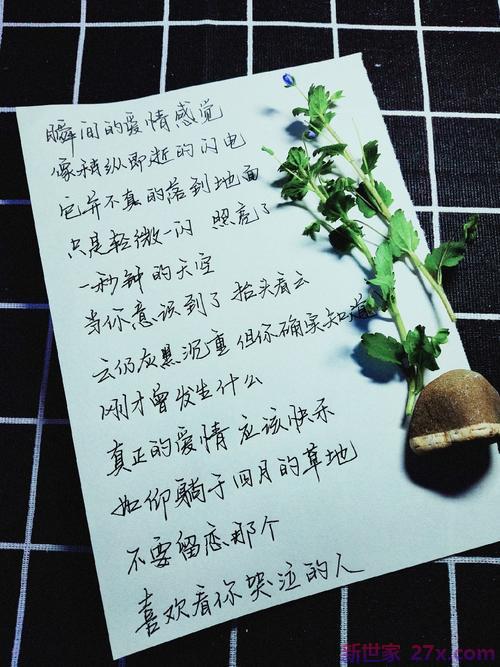 瞬间的爱情感觉
像稍纵即逝的闪电
它并不真的落到地面
只是轻微一闪 照亮了
一秒钟的天空
当你意识到了 抬头看云
云仍灰黑沉重 但你确实知道
刚才曾发生什么
真正的爱情 应该快乐
如仰躺于四月的草地
不要留恋那个
喜欢看你哭泣的人
新世家 27x.com